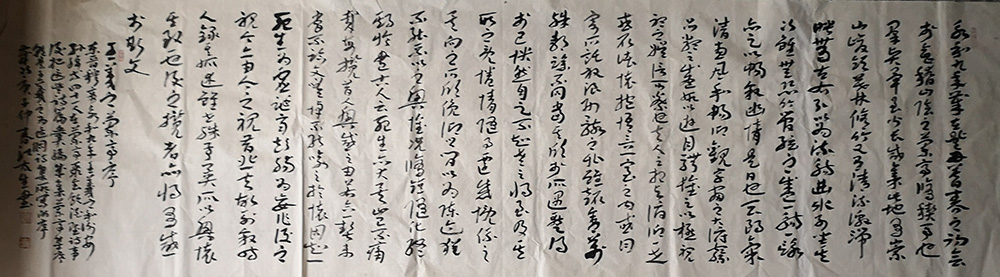 永和九年歲在癸丑暮春之初會
于會稽山陰之蘭亭脩禊事也
羣賢畢至少長咸集此地有崇
山峻領茂林脩竹又有清流激湍
暎帶左右引以為流觴曲水列坐其
次雖無絲竹管弦之盛一觴一詠
亦足以暢敘幽情是日也天朗氣
清惠風和暢仰觀宇宙之大俯察
品類之盛所以遊目騁懷足以極視
聽之娛信可樂也夫人之相與俯仰一世
或取諸懷抱悟言一室之內或因
寄所託放浪形骸之外雖趣舍萬
殊靜躁不同當其欣於所遇蹔得
於己怏然自足不知老之將至及其
所之既惓情隨事遷感慨係之
矣向之所欣俛仰之間以為陳迹猶
不能不以之興懷況脩短隨化終
期於盡古人云死生亦大矣豈不痛
哉每攬昔人興感之由若合一契未
嘗不臨文嗟悼不能喻之於懷固知一
死生為虛誕齊彭殤為妄作後之
視今亦由今之視昔悲夫故列敘時
人錄其所述雖世殊事異所以興懷
其致一也後之攬者亦將有感
於斯文
王羲之蘭亭序